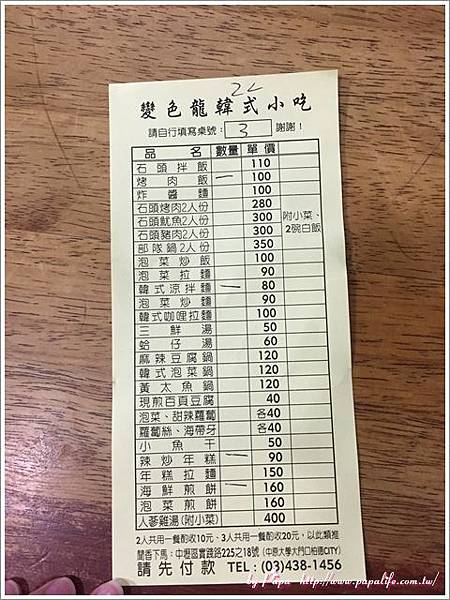 22
變色龍韓式小吃
請自行填寫桌號：3 謝謝！
品名 數量 單價
石頭拌飯 110
烤肉飯 一 100
炸醬麵 100
石頭烤肉2人份 280
石頭魷魚2人份 300 附小菜、
石頭豬肉2人份 300 2碗白飯
部隊鍋2人份 350
泡菜炒飯 100
泡菜拉麵 90
韓式涼拌麵 一 80
泡菜炒麵 90
韓式咖哩拉麵 100
三鮮湯 50
蛤仔湯 60
麻辣豆腐鍋 120
韓式泡菜鍋 120
黃太魚鍋 120
現煎百頁豆腐 40
泡菜、甜辣蘿蔔 各40
蘿蔔絲、海帶牙 各40
小魚干 50
辣炒年糕 一 90
年糕拉麵 150
海鮮煎餅 一 160
泡菜煎餅 160
人蔘雞湯(附小菜) 400
2人共用一餐酌收10元、3人共用一餐酌收20元，以此類推
聞香下馬：中壢區實踐路225之18號(中原大學大門口柏德CITY)
請先付款 TEL：(03)438-1456
by Papa - http://www.papalife.com.tw/